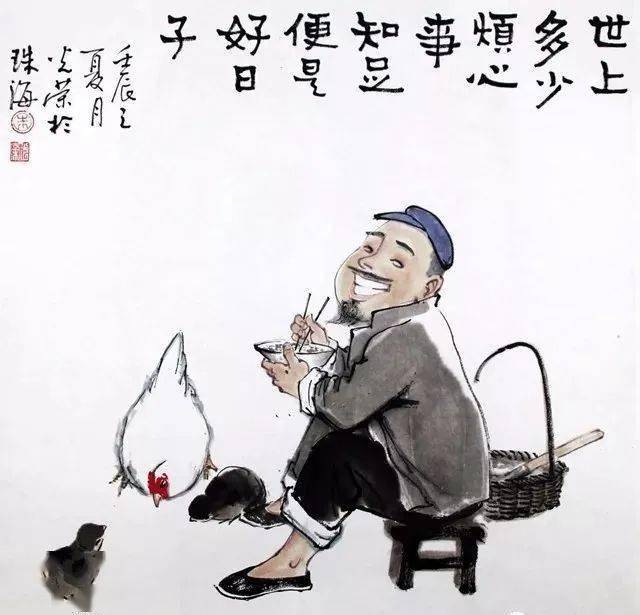 世上
多少
煩心
事
知足
便是
好日
子
壬辰之
夏月
光荣於
珠海
朱